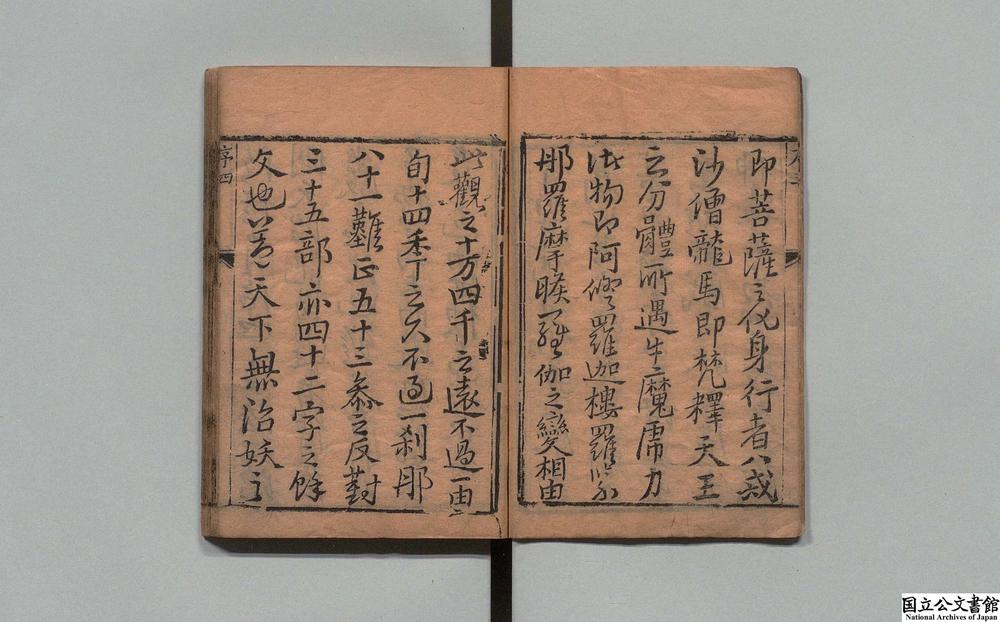 即菩薩之化身行者八戒
沙僧龍馬即梵釋天王
之分體所遇牛魔虎力
諸物即阿修羅迦樓羅緊
那羅摩睺羅伽之變相由
此觀之十方四千之遠不過一由
旬十四季之久不過一刹那
八十一難正五十三參之反對
三十五部亦四十二字之餘
文也蓋天下無治妖之
序四
国立公文書館
National Archives of Japan